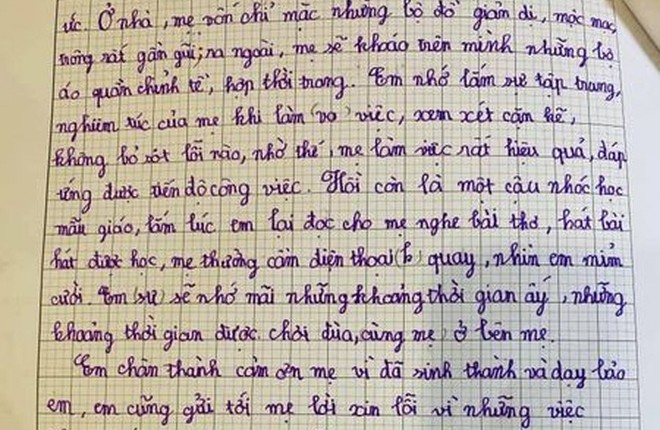 ức. Ở nhà, mẹ vốn chỉ mặc những bộ đồ giản dị, mộc mạc,
trông rất gần gũi; ra ngoài, mẹ sẽ khoác trên mình những bộ
áo quần chỉnh tề, hợp thời trang. Em nhớ lắm sự tập trung,
nghiêm túc của mẹ khi làm (vo) việc, xem xét cặn kẽ,
không bỏ sót lỗi nào, nhờ thế, mẹ làm việc rất hiệu quả, đáp
ứng được tiến độ công việc. Hồi còn là một cậu nhóc học
mẫu giáo, lắm lúc em lại đọc cho mẹ nghe bài thơ, hát bài
hát được học, mẹ thường cầm điện thoại (b) quay, nhìn em mỉm
cười. Em (sự) sẽ nhớ mãi những khoảng thời gian ấy, những
khoảng thời gian được chơi đùa, cùng mẹ, ở bên mẹ.
Em chân thành cảm ơn mẹ vì đã sinh thành và dạy bảo
em, em cũng gửi tới mẹ lời xin lỗi vì những việc